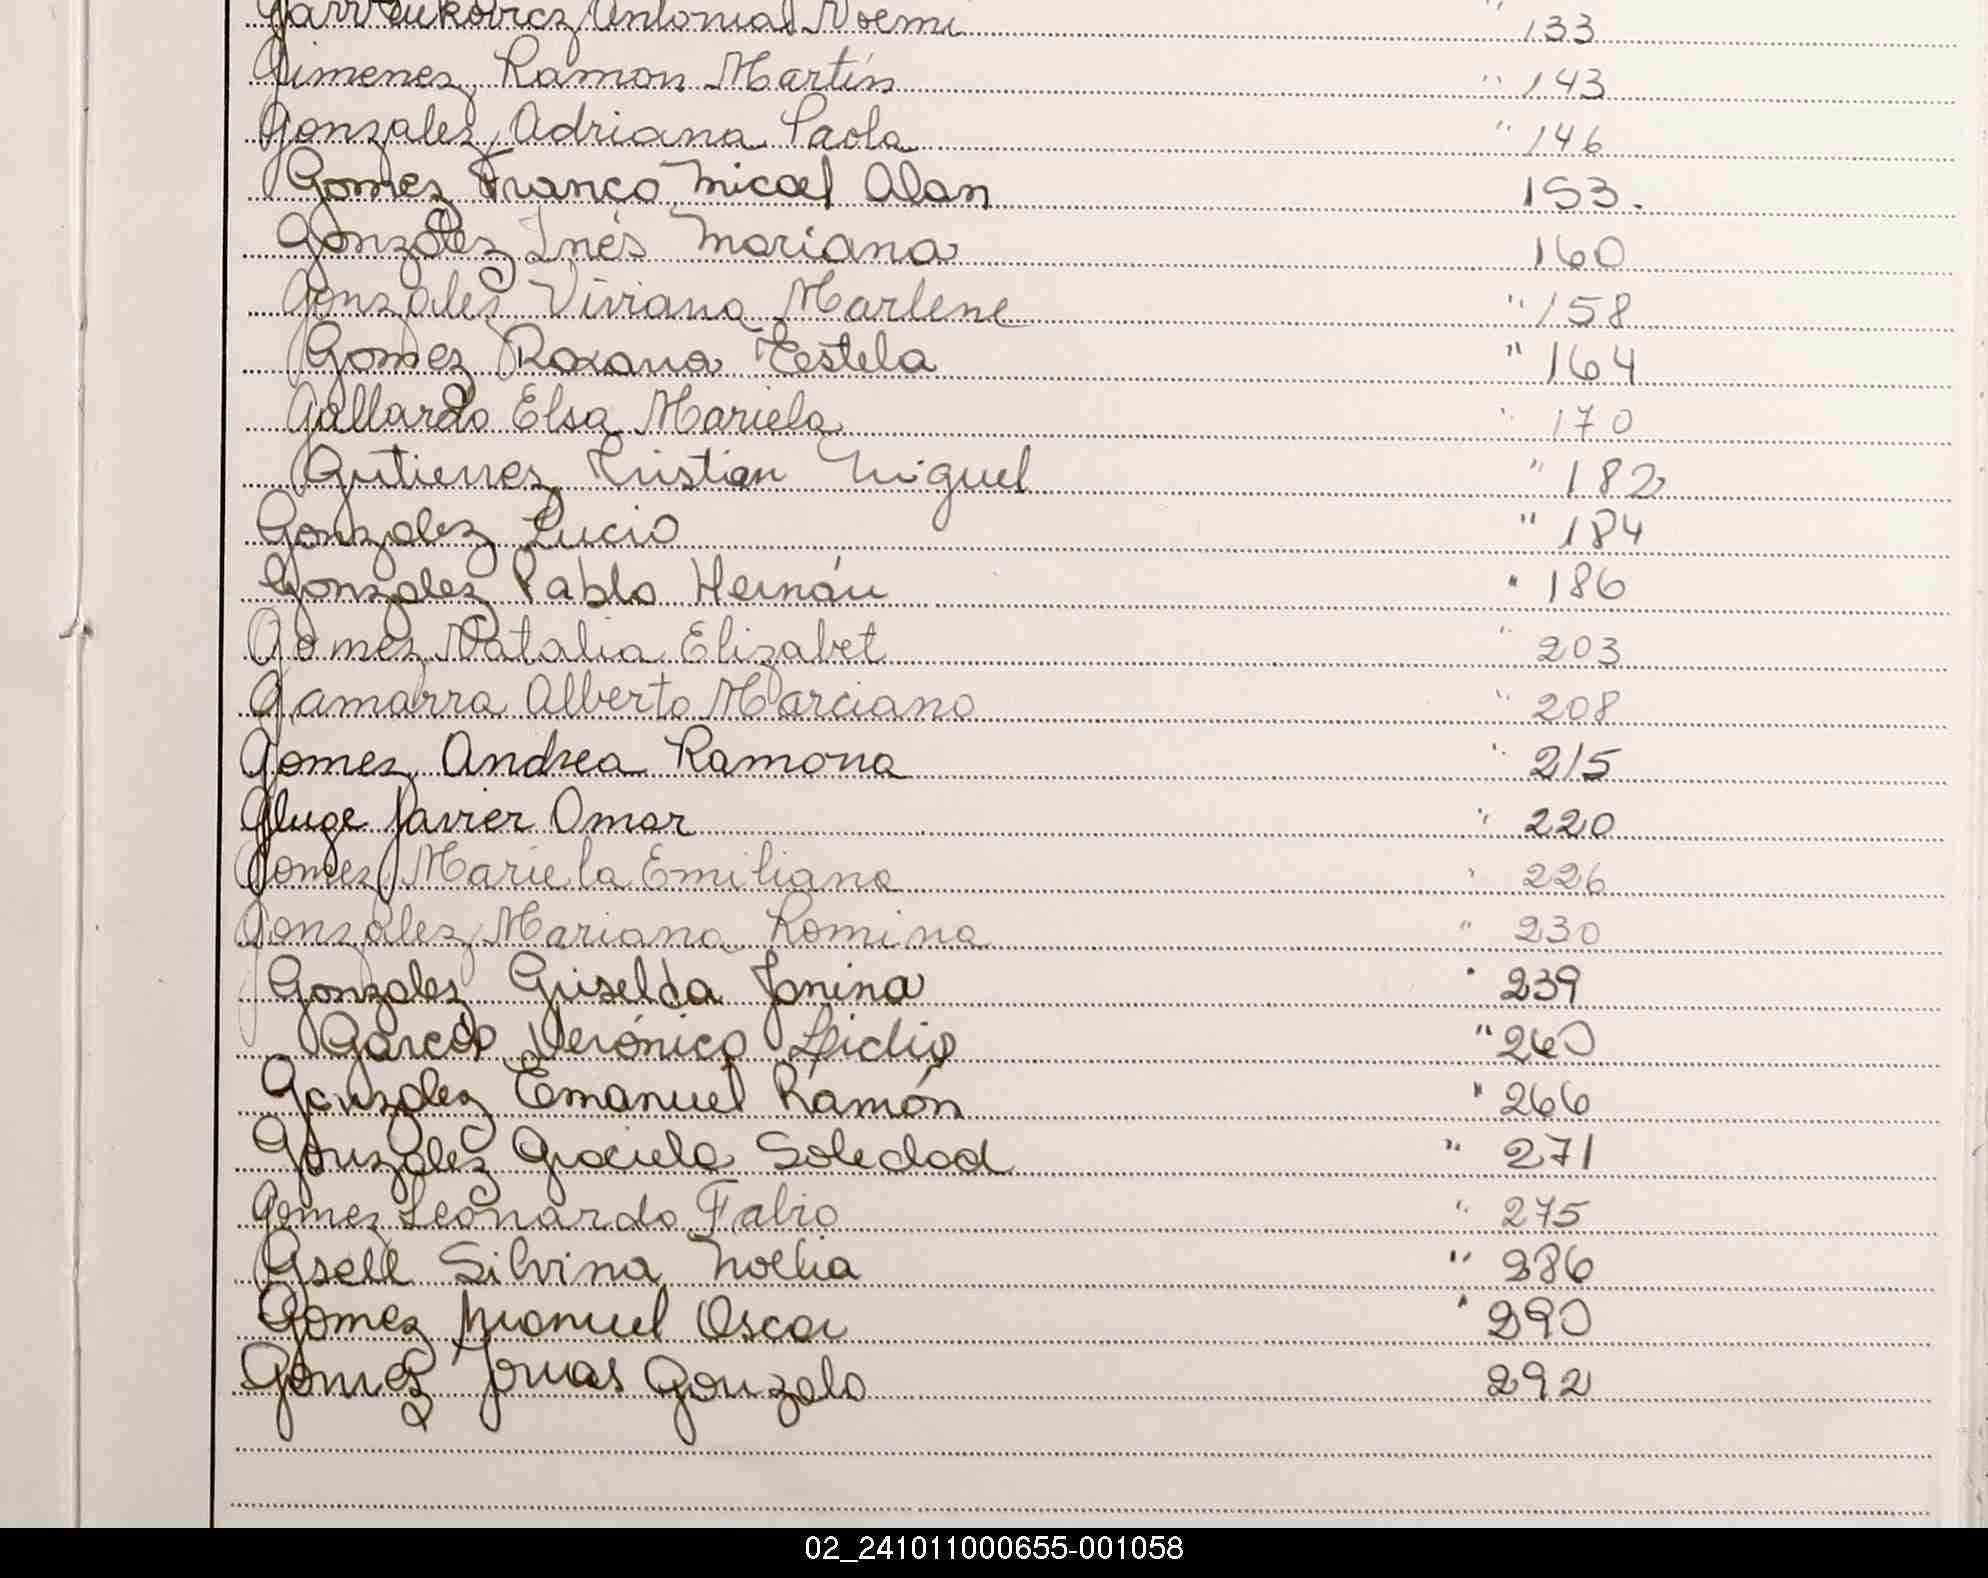 Antonia Noemi " 133
Gimenez Ramon Martín " 143
Gonzalez Adriana Paola " 146
Gomez Franco Micael Alan 153.
Gonzalez Inés Mariana 160
Gonzalez Viviana Marlene " 158
Gomez Roxana Estela " 164
Gallardo Elsa Mariela " 170
Gutierrez Cristian Miguel " 182
Gonzalez Lucio " 184
Gonzalez Pablo Hernán " 186
Gomez Natalia Elizabet " 203
Gamarra Alberto Marciano " 208
Gomez Andrea Ramona " 215
Gluge Javier Omar " 220
Gomez Mariela Emiliana " 226
Gonzalez Mariana Romina " 230
Gonzalez Griselda Janina " 239
Garcia Verónica Lidia " 260
Gonzalez Emanuel Ramón " 266
Gonzalez Graciela Soledad " 271
Gomez Leonardo Fabio " 275
Gsell Silvina Noelia " 286
Gomez Manuel Oscar " 290
Gomez Jonas Gonzalo 292
02_241011000655-001058